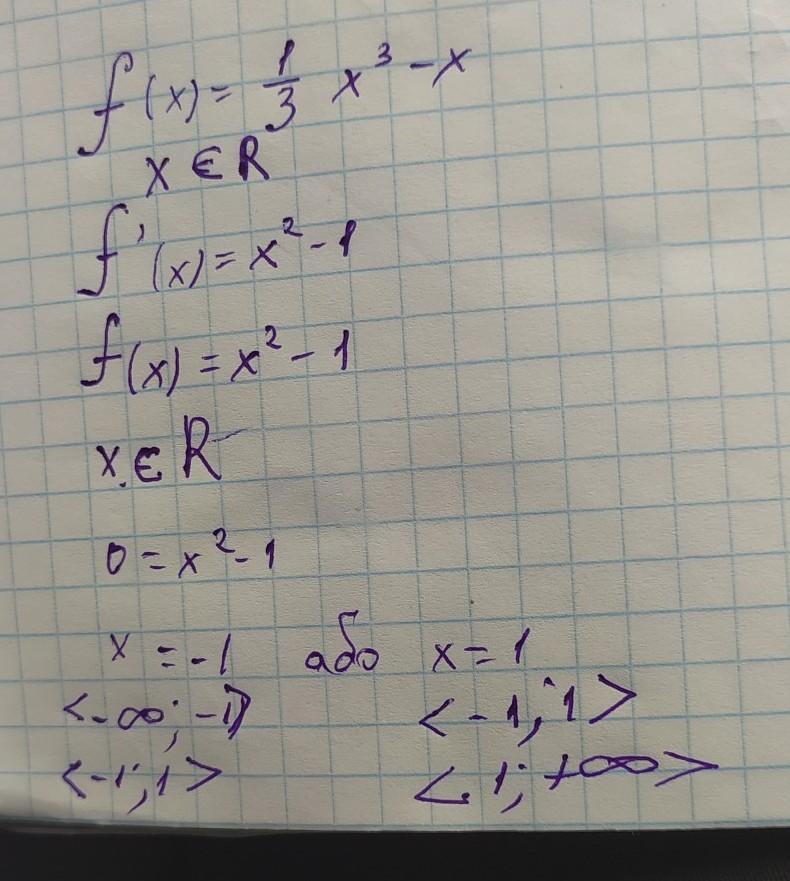 f(x) = 1/3 x³ - x
x ∈ R
f'(x) = x² - 1
f(x) = x² - 1
x ∈ R
0 = x² - 1
x = -1 або x = 1
<-∞; -1> <-1; 1>
<-1; 1> <1; +∞>